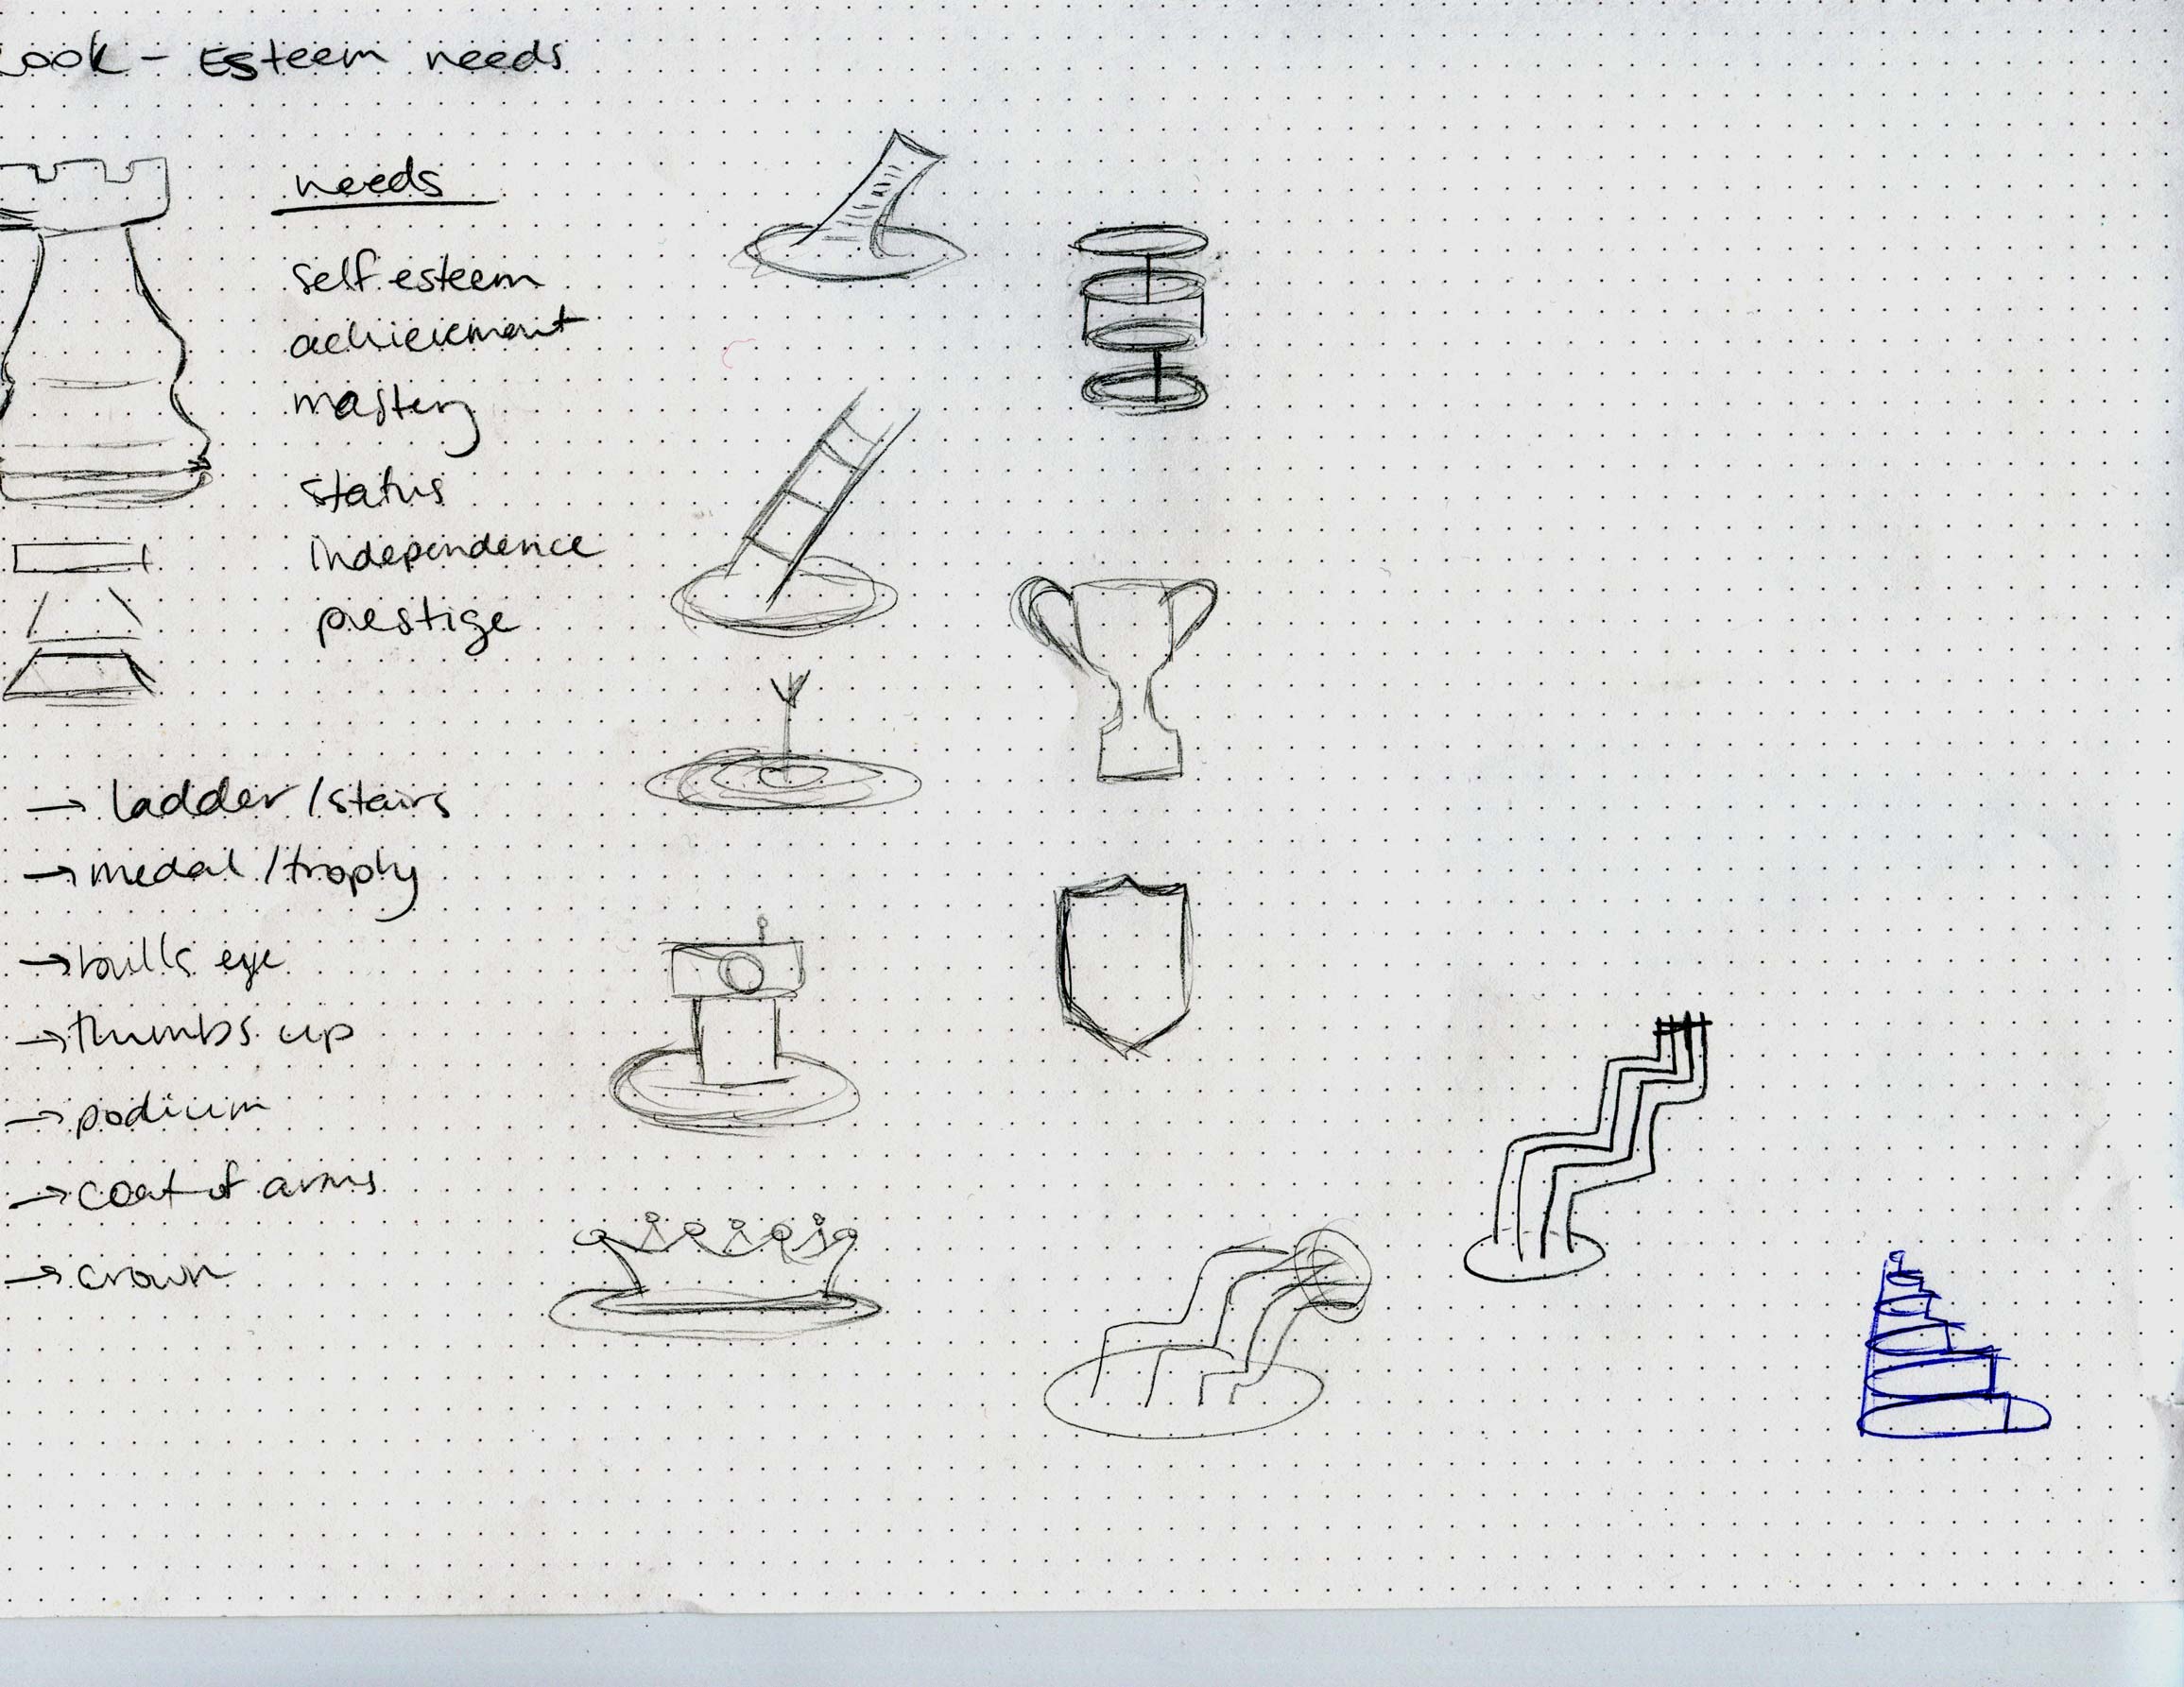 ook - Esteem needs
needs
self esteem
achievement
mastery
status
independence
prestige
→ ladder / stairs
→ medal / trophy
→ bulls eye
→ thumbs up
→ podium
→ coat of arms
→ crown